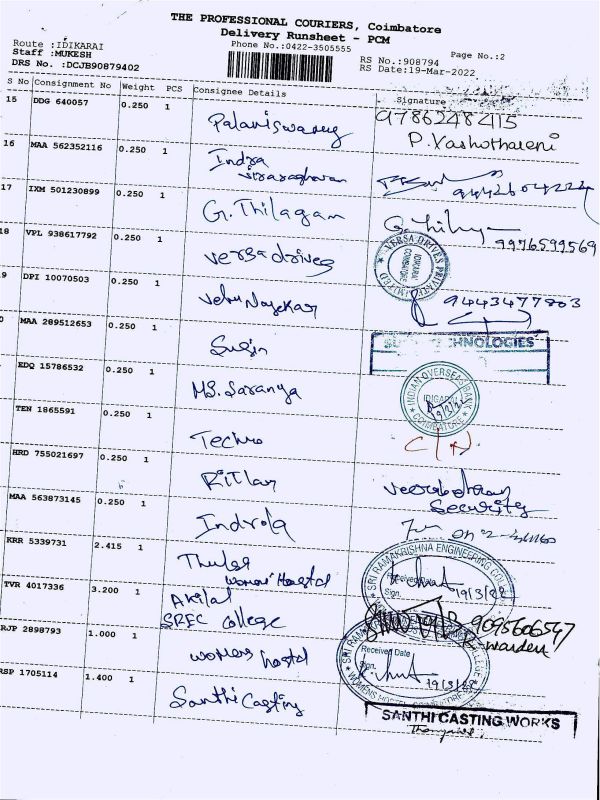 THE PROFESSIONAL COURIERS, Coimbatore
Delivery Runsheet - PCM
Phone No.:0422-3505555
Route :IDIKARAI
Staff :MUKESH
DRS No. :DCJB90879402
RS No.:908794
RS Date:19-Mar-2022
Page No.:2
S No Consignment No Weight PCS Consignee Details Signature
15 DDG 640057 0.250 1
97862482415
P.Yashothareni
16 MAA 562352116 0.250 1 Indra
17 IXM 501230899 0.250 1 G.Thilagam
9976599569
8 VPL 938617792 0.250 1 versa drives
VERSA DRIVES PRIVATE LIMITED
IDIKARAI
COIMBATORE
9 DPI 10070503 0.250 1
9443477803
0 MAA 289512653 0.250 1 Susin
TECHNOLOGIES
EDQ 15786532 0.250 1 MS. Saranya
INDIAN OVERSEAS BANK
IDIGARAI
COIMBATORE
TEN 1865591 0.250 1 Techno
HRD 755021697 0.250 1
Security
MAA 563873145 0.250 1 Indrola
KRR 5339731 2.415 1 Thulasi
womens Hostel
SRI RAMAKRISHNA ENGINEERING COLLEGE
Received Date
Sign.
19/3/22
TVR 4017336 3.200 1 Akilal
SREC College
9095606547
warden
RJP 2898793 1.000 1 womens hostel
Received Date
Sign.
19/3/22
RSP 1705114 1.400 1 Santhi Casting
SANTHI CASTING WORKS